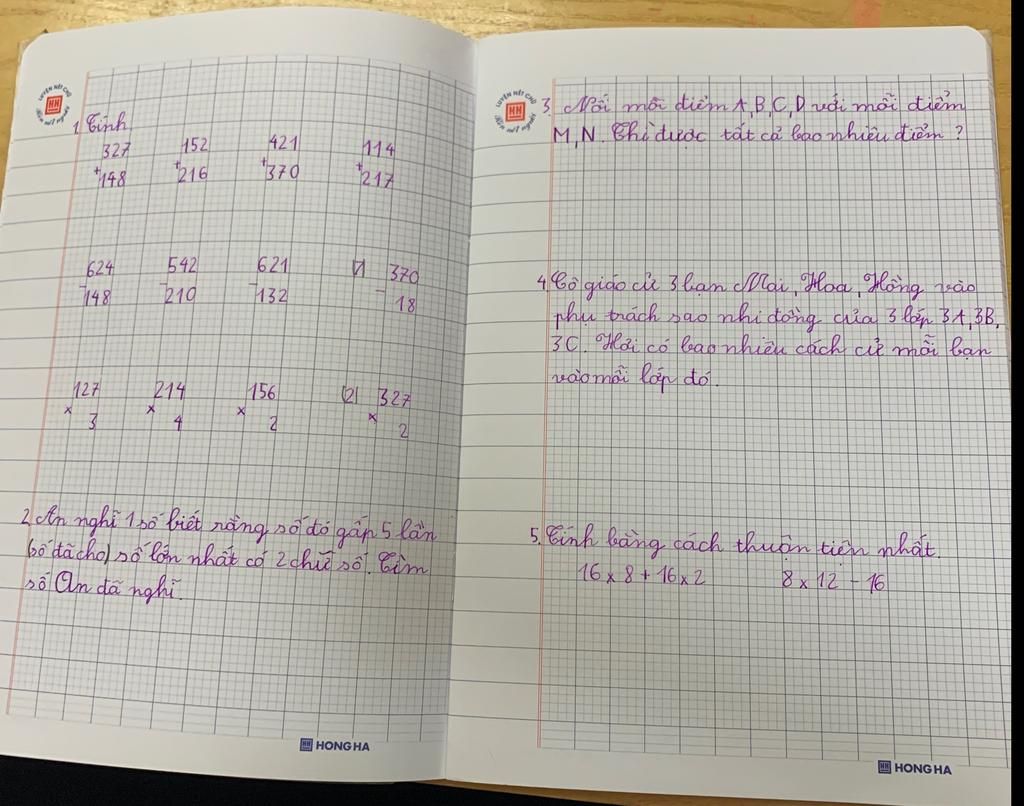 LUYỆN NÉT CHỮ
HH
Rèn nết người
1, Tính
327 152 421 114
+ + + +
148 216 370 217
624 542 621 1) 370
- - - -
148 210 132 18
127 214 156 (2) 327
× × × ×
3 4 2 2
2, An nghĩ 1 số biết rằng số đó gấp 5 lần
(số đã cho) số lớn nhất có 2 chữ số. Tìm
số An đã nghĩ.
HH HONG HA
LUYỆN NÉT CHỮ
HH
Rèn nết người
3. Nối mỗi điểm A,B,C,D với mỗi điểm
M,N. Thì được tất cả bao nhiêu điểm ?
4, Cô giáo cử 3 bạn Mai, Hoa, Hồng vào
phụ trách sao nhi đồng của 3 lớp 3A, 3B,
3C. Hỏi có bao nhiêu cách cử mỗi bạn
vào mỗi lớp đó.
5. Tính bằng cách thuận tiện nhất.
16 × 8 + 16 × 2 8 × 12 - 16
HH HONG HA